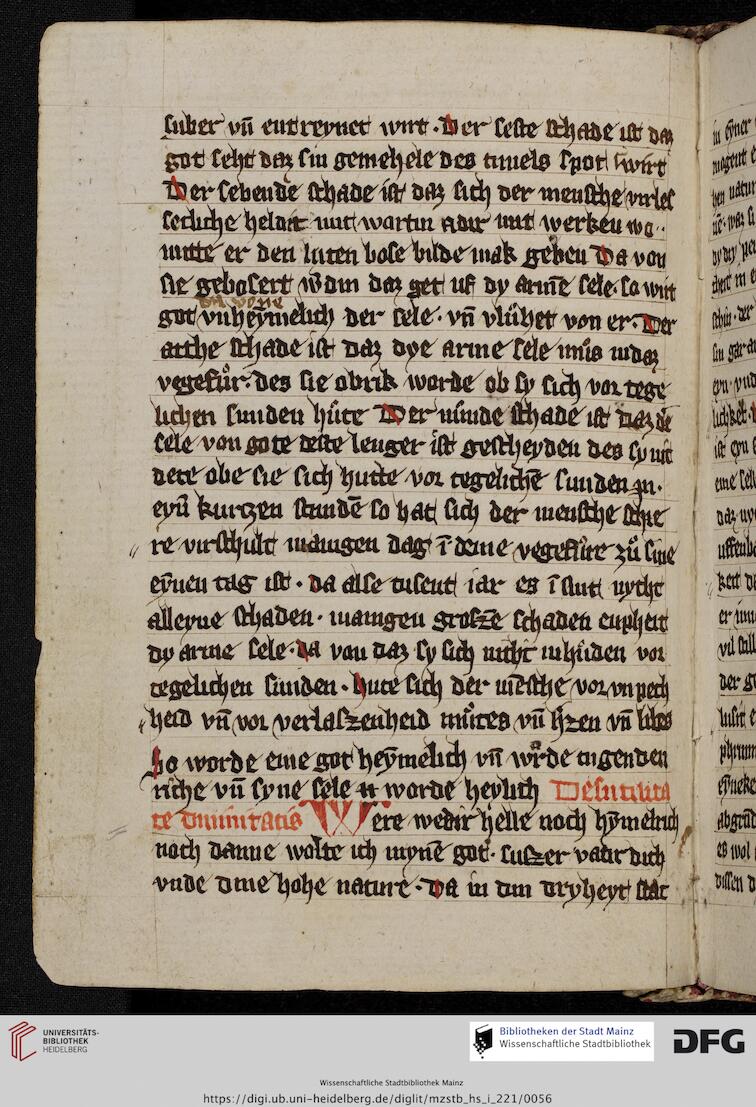 suber vn̄ entreynet wirt · Der seste schade ist daz
got seht daz sin gemehele des tuuels spot wirt
Der sebende schade ist daz sich der mensche virles
secliche heldit mit wortin adir mit werken wo
mitte er den luten bose bilde mak geben Da von
sie gebosert w̄din daz get uf dy arme sele · so wirt
got vnheȳmelich der sele · vn̄ vlühet von er · Der
achte schade ist daz dye arme sele muͦs in daz
vegefuͦr · des sie obrik worde ob sy sich vor tege
lichen sunden huͦte Der nuͦnde schade ist daz dē
sele von gote deste lenger ist gescheyden des sy nit
dete obe sie sich hutte vor tegelichē sunden In
eyn̄ kurtzen stundē so hat sich der mensche schie
re virschult mangen dag ī deme vegefuͦre zuͦ sine
eynen tag ist · da alse tusent iar es ī sint nycht
alleyne schaden · mangen groszē schaden enphent
dy arme sele · da von daz sy sich nicht inhuͦden vor
tegelichen sunden · hute sich der mēsche vor vn pech
heid vn̄ vor verlaszenheid muͦtes vn̄ h̓zen vn̄ libes
so worde eme got heȳmelich vn̄ wͦrde tugenden
riche vn̄ syne sele worde heylich De sutilita
te diuinitatis Were wedir helle noch hȳmelrich
noch danne wolte ich mynē got · suszer vadir dich
vnde dine hohe nature · da in din dryheyt stat
UNIVERSITÄTS-
BIBLIOTHEK
HEIDELBERG
Bibliotheken der Stadt Mainz
Wissenschaftliche Stadtbibliothek
DFG
Wissenschaftliche Stadtbibliothek Mainz
https://digi.ub.uni-heidelberg.de/diglit/mzstb_hs_i_221/0056